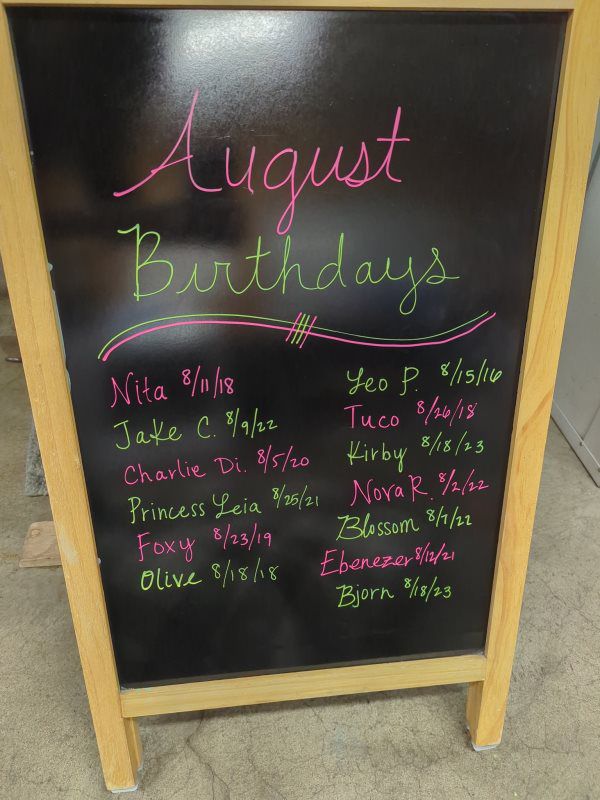 August
Birthdays
Nita 8/11/18
Jake C. 8/9/22
Charlie Di. 8/5/20
Princess Leia 8/25/21
Foxy 8/23/19
Olive 8/18/18
Leo P. 8/15/16
Tuco 8/26/18
Kirby 8/18/23
Nova R. 8/2/22
Blossom 8/7/22
Ebenezer 8/12/21
Bjorn 8/18/23